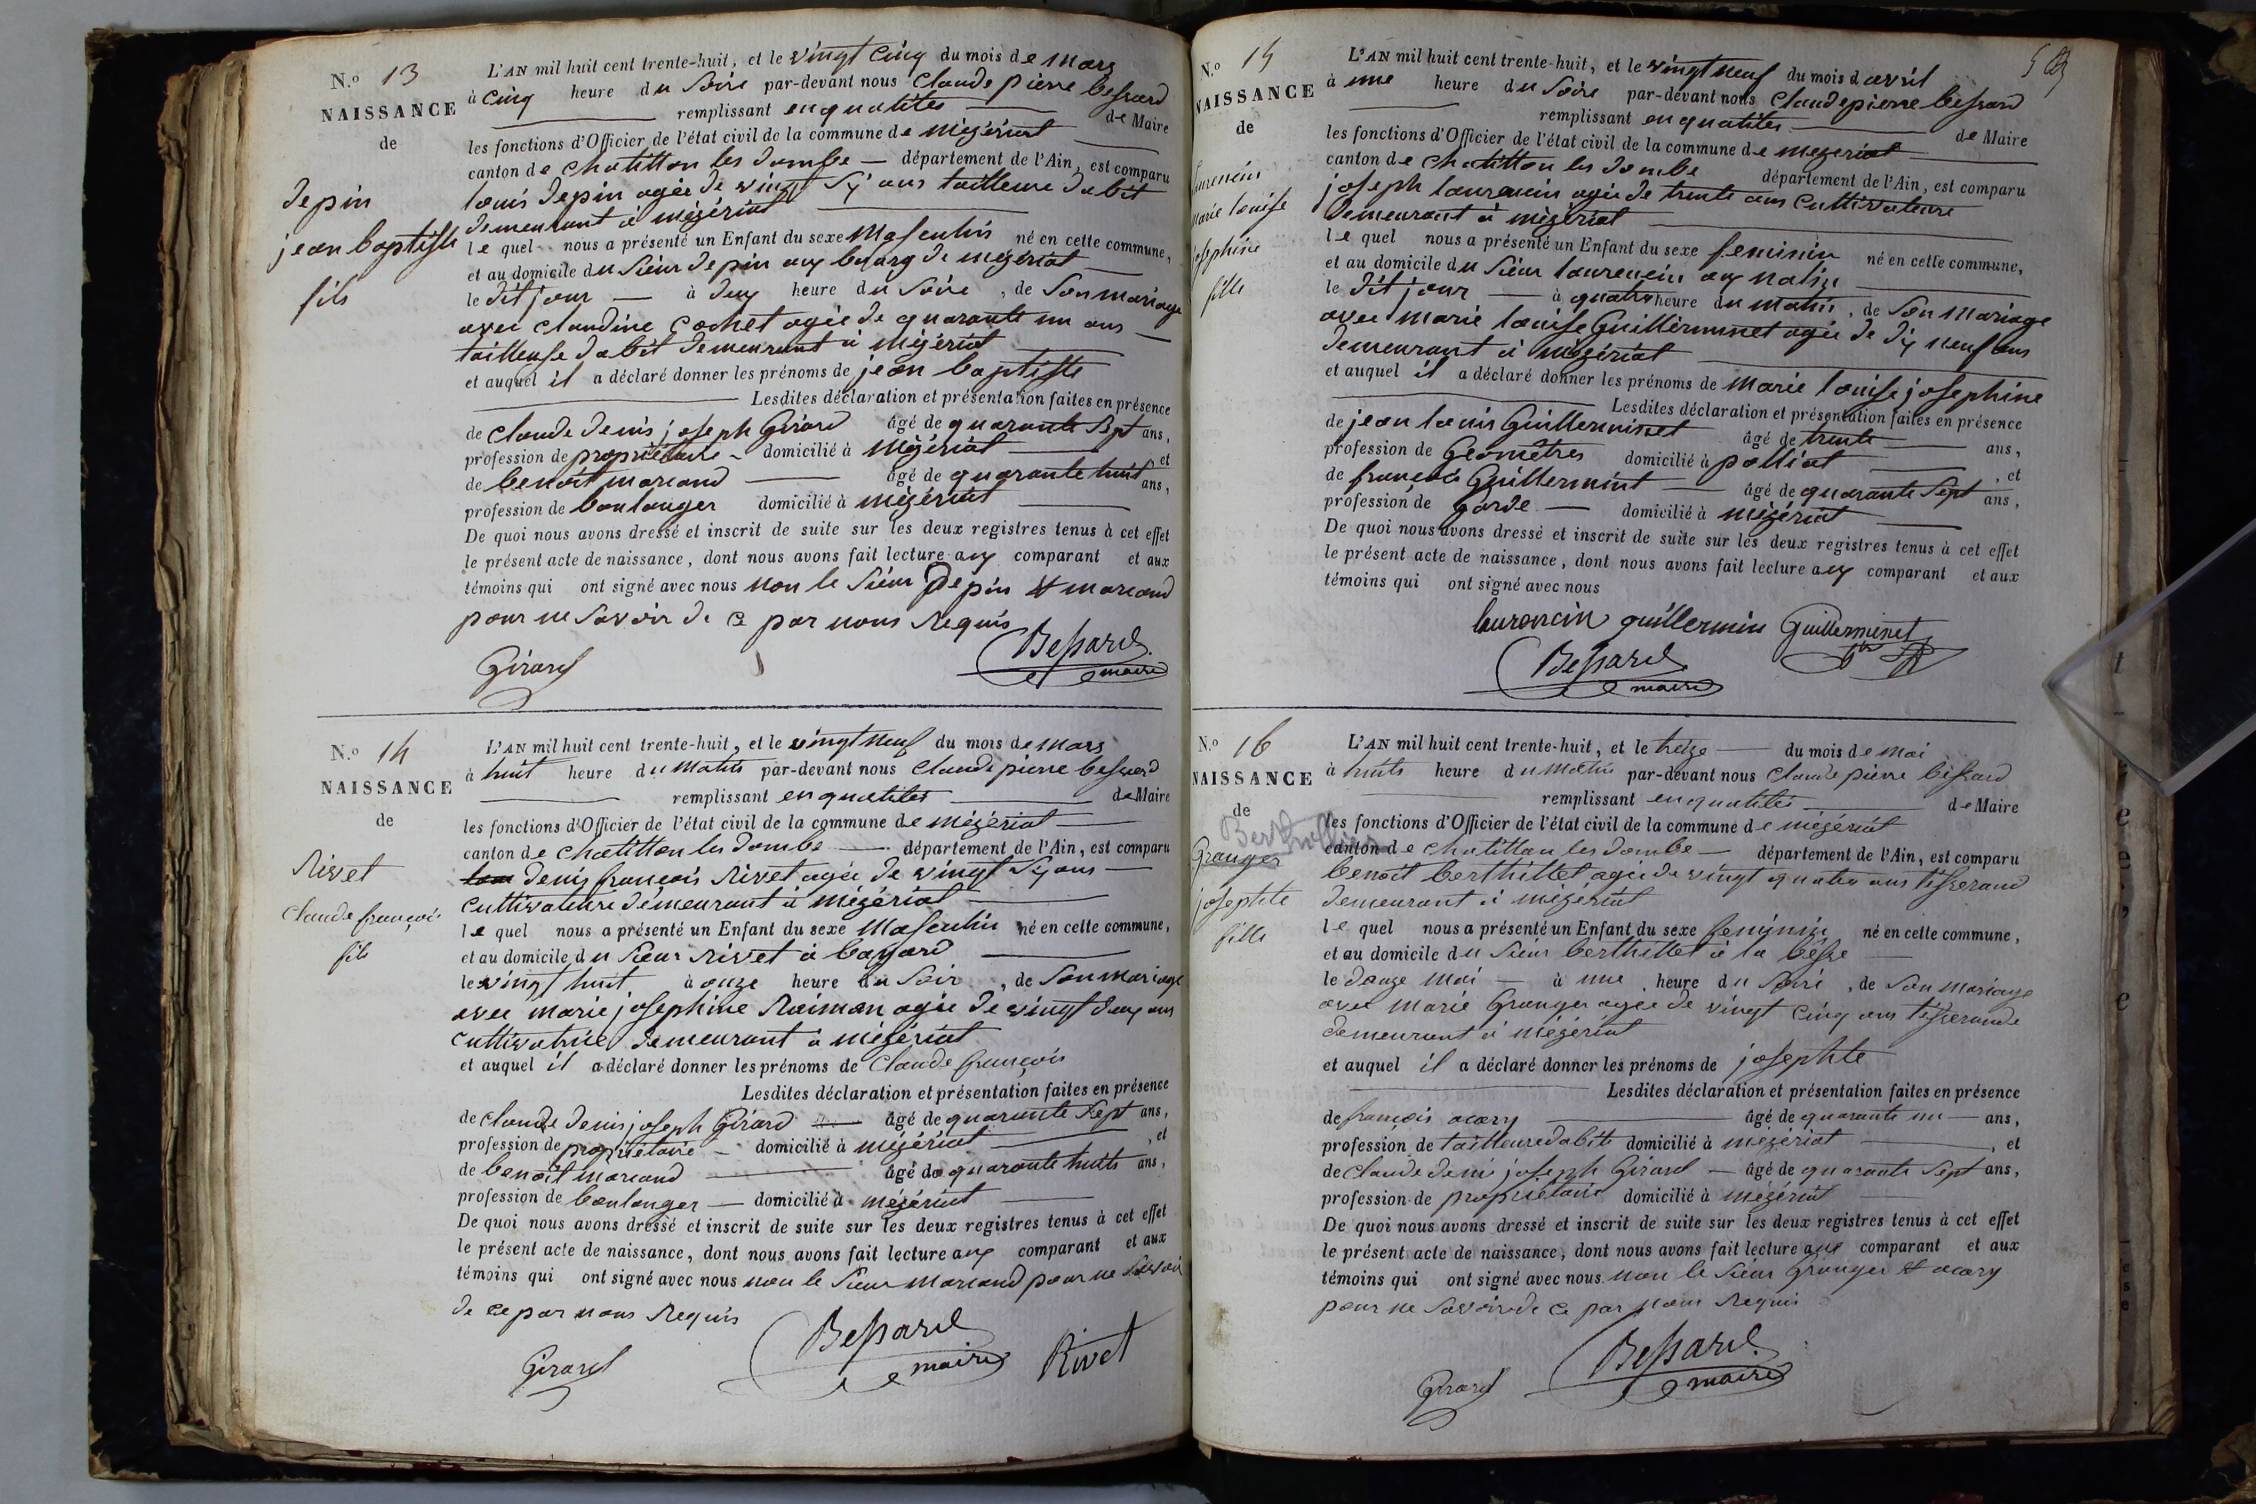 N.o 13
NAISSANCE
de
depin
jean baptiste
fils
L'AN mil huit cent trente-huit, et le vingt cinq du mois de mars
à cinq heure du soire par-devant nous claude pierre bessard
remplissant en qualités de Maire
les fonctions d'Officier de l'état civil de la commune de mézériat
canton de chatillon les dombe — département de l'Ain, est comparu
louis depin agée de vingt six ans tailleure dabit
demeurant à mézériat
le quel nous a présenté un Enfant du sexe masculin né en cette commune,
et au domicile du sieur depin aux bourg de mézériat
le dit jour — à deux heure du soire, de son mariage
avec claudine cochet agée de quarante un ans —
tailleuse dabit demeurant à mézériat
et auquel il a déclaré donner les prénoms de jean baptiste
Lesdites déclaration et présentation faites en présence
de claude denis joseph Girard âgé de quarante sept ans,
profession de propriétaire - domicilié à mézériat et
de benoit marcand — âgé de quarante huit ans,
profession de boulanger domicilié à mézériat
De quoi nous avons dressé et inscrit de suite sur les deux registres tenus à cet effet
le présent acte de naissance, dont nous avons fait lecture aux comparant et aux
témoins qui ont signé avec nous non le sieur depin et marcand
pour ne savoir de ce par nous requis
Girard Bessard maire
N.o 14
NAISSANCE
de
Rivet
claude françois
fils
L'AN mil huit cent trente-huit, et le vingt neuf du mois de mars
à huit heure du matin par-devant nous claude pierre bessard
remplissant en qualités de Maire
les fonctions d'Officier de l'état civil de la commune de mézériat
canton de chatillon les dombe — département de l'Ain, est comparu
denis françois Rivet agée de vingt six ans —
cultivateure demeurant à mézériat
le quel nous a présenté un Enfant du sexe masculin né en cette commune,
et au domicile du sieur Rivet à bayard
le vingt huit à onze heure du soir, de son mariage
avec marie josephine Raiman agée de vingt deux ans
cultivatrice demeurant à mézériat
et auquel il a déclaré donner les prénoms de claude françois
Lesdites déclaration et présentation faites en présence
de claude denis joseph Girard âgé de quarante sept ans,
profession de propriétaire - domicilié à mézériat, et
de benoit marcand âgé de quarante huits ans,
profession de boulanger — domicilié à mézériat
De quoi nous avons dressé et inscrit de suite sur les deux registres tenus à cet effet
le présent acte de naissance, dont nous avons fait lecture aux comparant et aux
témoins qui ont signé avec nous non le sieur marcand pour ne savoir
de ce par nous requis
Girard Bessard maire Rivet
N.o 15
NAISSANCE
de
laurencin
marie louise
josephine
fille
L'AN mil huit cent trente-huit, et le vingt neuf du mois d avril
à une heure du soire par-devant nous claude pierre bessard
remplissant en qualités de Maire
les fonctions d'Officier de l'état civil de la commune de mezeriat
canton de chatillon les dombe département de l'Ain, est comparu
joseph laurencin agée de trente ans cultivateure
demeurant à mézériat
le quel nous a présenté un Enfant du sexe feminin né en cette commune,
et au domicile du sieur laurencin aux
le dit jour — à quatre heure du matin, de son mariage
avec marie louise Guillerminet agée de dix neuf ans
demeurant à mézériat
et auquel il a déclaré donner les prénoms de marie louise josephine
Lesdites déclaration et présentation faites en présence
de jean louis Guillerminet âgé de trente ans,
profession de Géomêtres domicilié à polliat, et
de françois Guillermint — âgé de quarante sept ans,
profession de garde — domicilié à mézériat
De quoi nous avons dressé et inscrit de suite sur les deux registres tenus à cet effet
le présent acte de naissance, dont nous avons fait lecture aux comparant et aux
témoins qui ont signé avec nous
laurencin guillermin Guillerminet
Bessard maire
N.o 16
NAISSANCE
de
Granger
josephte
fille
L'AN mil huit cent trente-huit, et le treize — du mois de mai
à huits heure du matin par-devant nous claude pierre bessard
remplissant en qualités de Maire
les fonctions d'Officier de l'état civil de la commune de mézériat
canton de chatillon les dombe — département de l'Ain, est comparu
benoit berthillet agée de vingt quatre ans tisserand
demeurant à mézériat
le quel nous a présenté un Enfant du sexe feminin né en cette commune,
et au domicile du sieur berthillet à la bésse
le douze mai — à une heure du soire, de son mariage
avec marie Granger agée de vingt cinq ans tisserande
demeurant à mézériat
et auquel il a déclaré donner les prénoms de josephte
Lesdites déclaration et présentation faites en présence
de françois acary âgé de quarante un — ans,
profession de tailleure dabit domicilié à mézériat, et
de claude deni joseph Girard — âgé de quarante sept ans,
profession de propriétaire domicilié à mézériat
De quoi nous avons dressé et inscrit de suite sur les deux registres tenus à cet effet
le présent acte de naissance, dont nous avons fait lecture aux comparant et aux
témoins qui ont signé avec nous non le sieur granger et acary
pour ne savoir de ce par nous requis
Girard Bessard maire